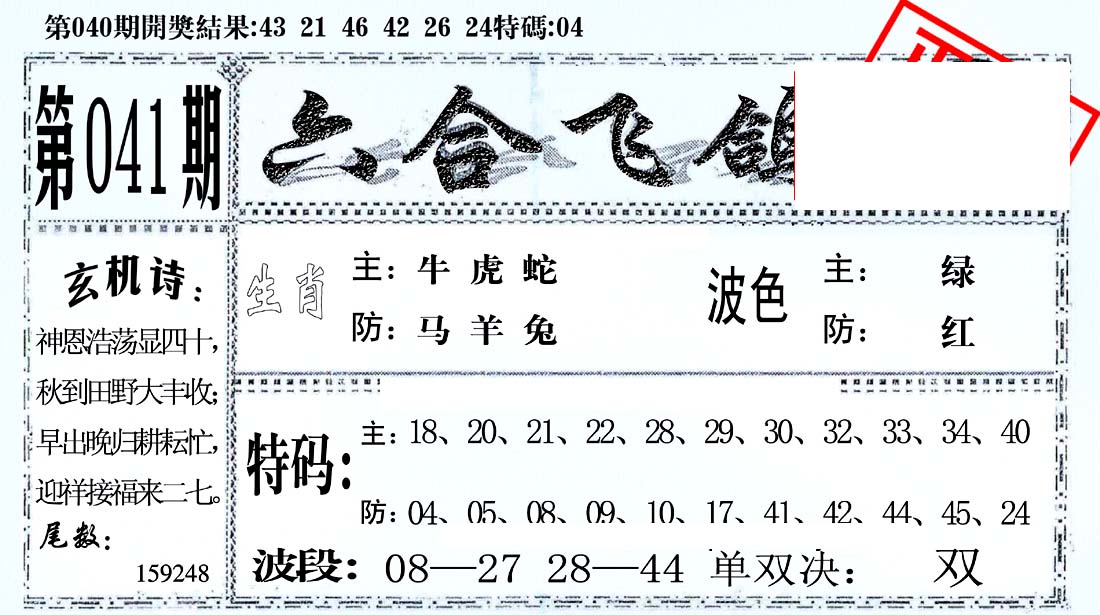 第040期開獎結果:43 21 46 42 26 24特碼:04
第041期
六合飞鸽
玄机诗：
神恩浩荡显四十，
秋到田野大丰收；
早出晚归耕耘忙，
迎祥接福来二七。
尾数：
159248
生肖
主：牛 虎 蛇
防：马 羊 兔
波色
主：绿
防：红
特码：
主：18、20、21、22、28、29、30、32、33、34、40
防：04、05、08、09、10、17、41、42、44、45、24
波段：08—27 28—44 单双决：双